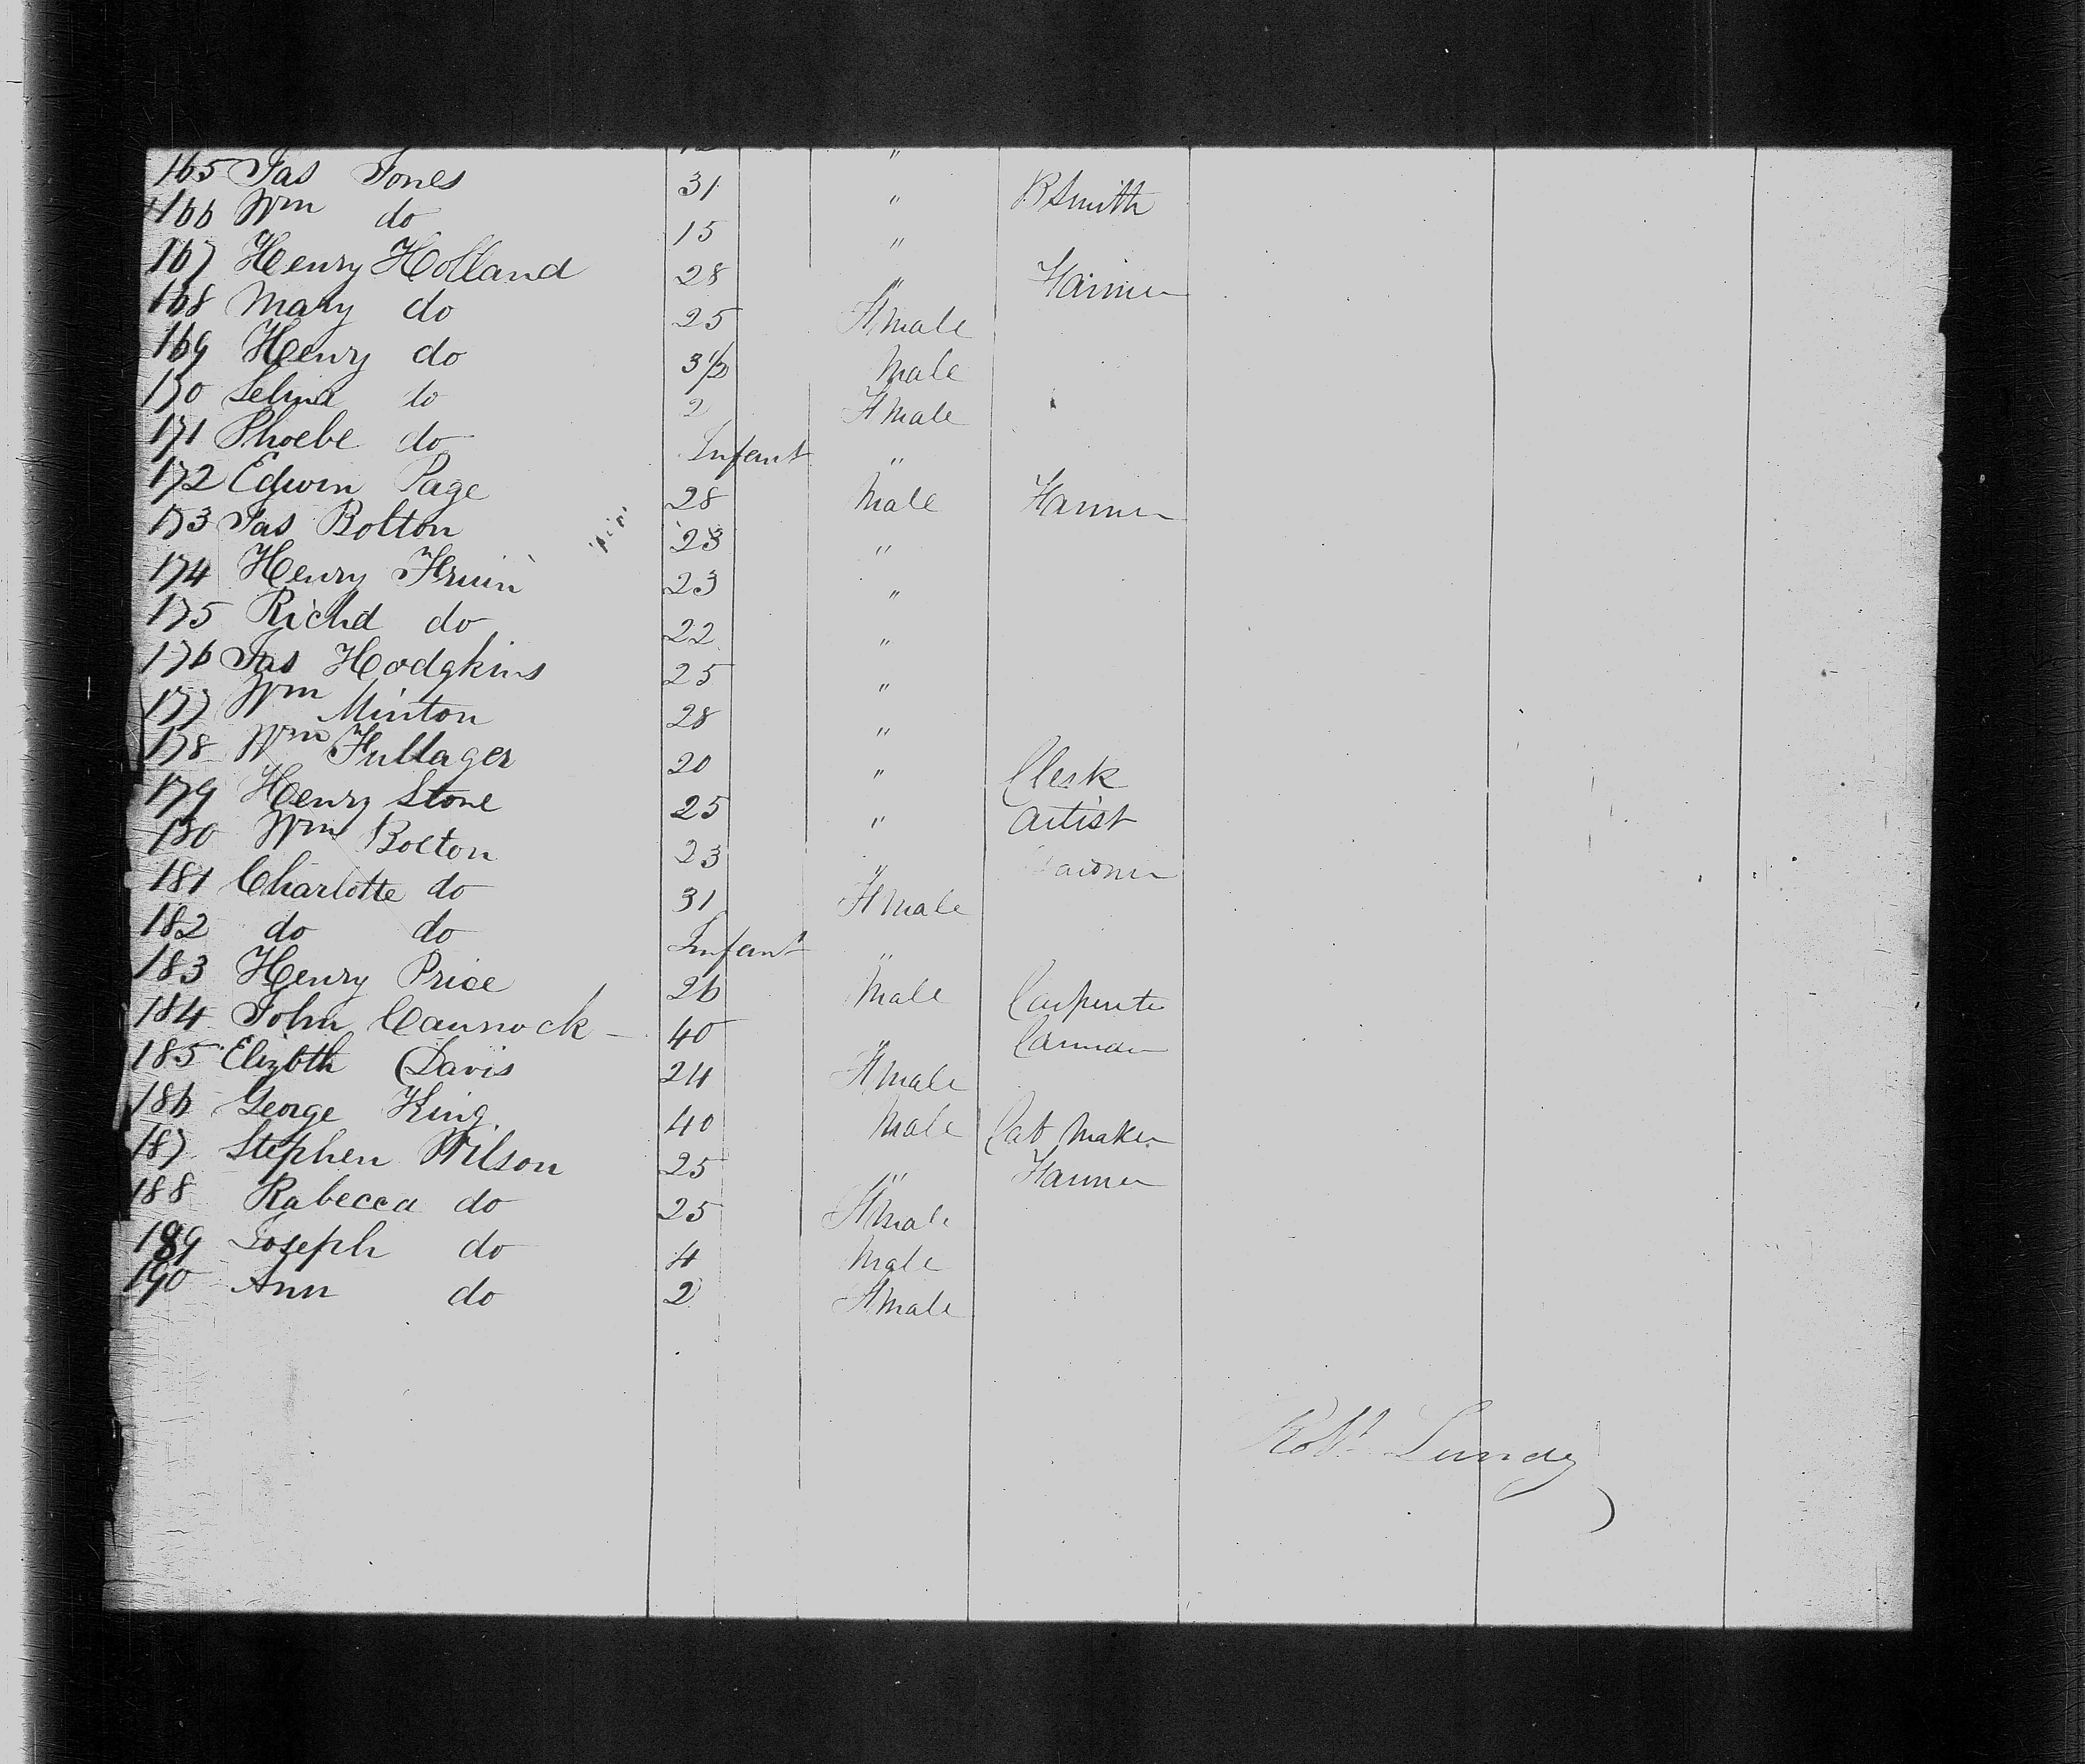 165 Jas Jones 31 " B Smith
166 Wm do 15 "
167 Henry Holland 28 " Farmer
168 Mary do 25 Female
169 Henry do 3½ Male
170 Selina do 2 Female
171 Phoebe do Infant "
172 Edwin Page 28 Male Farmer
173 Jas Bolton 23 "
174 Henry 23 "
175 Richd do 22 "
176 Jas Hodgkins 25 "
177 Wm Minton 28 "
178 Wm Fullager 20 " Clerk
179 Henry Stone 25 " Artist
180 Wm Bolton 23 "
181 Charlotte do 31 Female
182 do do Infant "
183 Henry Price 26 Male Carpenter
184 John Cannock 40 "
185 Elizbth Davis 24 Female
186 George King 40 Male Cab Maker
187 Stephen Wilson 25 " Farmer
188 Rabecca do 25 Female
189 Joseph do 4 Male
190 Ann do 2 Female
Robt Lundy